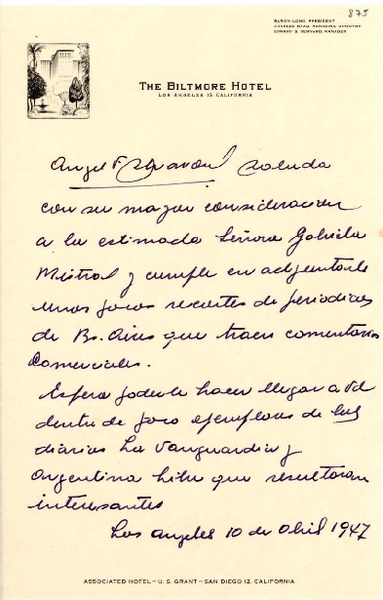 875
BARON LONG, PRESIDENT
EDWARD S. BERNARD, MANAGER
THE BILTMORE HOTEL
LOS ANGELES 13, CALIFORNIA
Angel F. saluda
con su mayor consideracion
a la estimada Señora Gabriela
Mistral y cumple en adjuntarle
unos pocos recortes de periodicos
de Bs. Aires que traen comentarios
comerciales.
Espera poderle hacer llegar a Vd
dentro de poco ejemplares de los
diarios La Vanguardia y
Argentina Libre que resultaran
interesantes
Los Angeles 10 de Abril 1947
ASSOCIATED HOTEL — U. S. GRANT — SAN DIEGO 12, CALIFORNIA